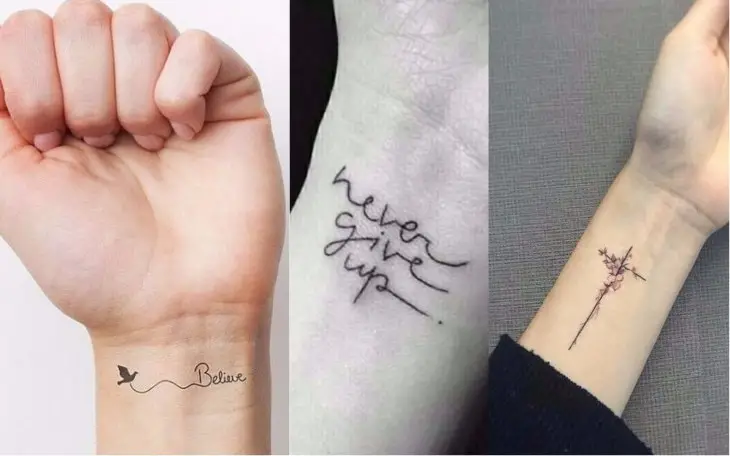 Believe
never
give
up.